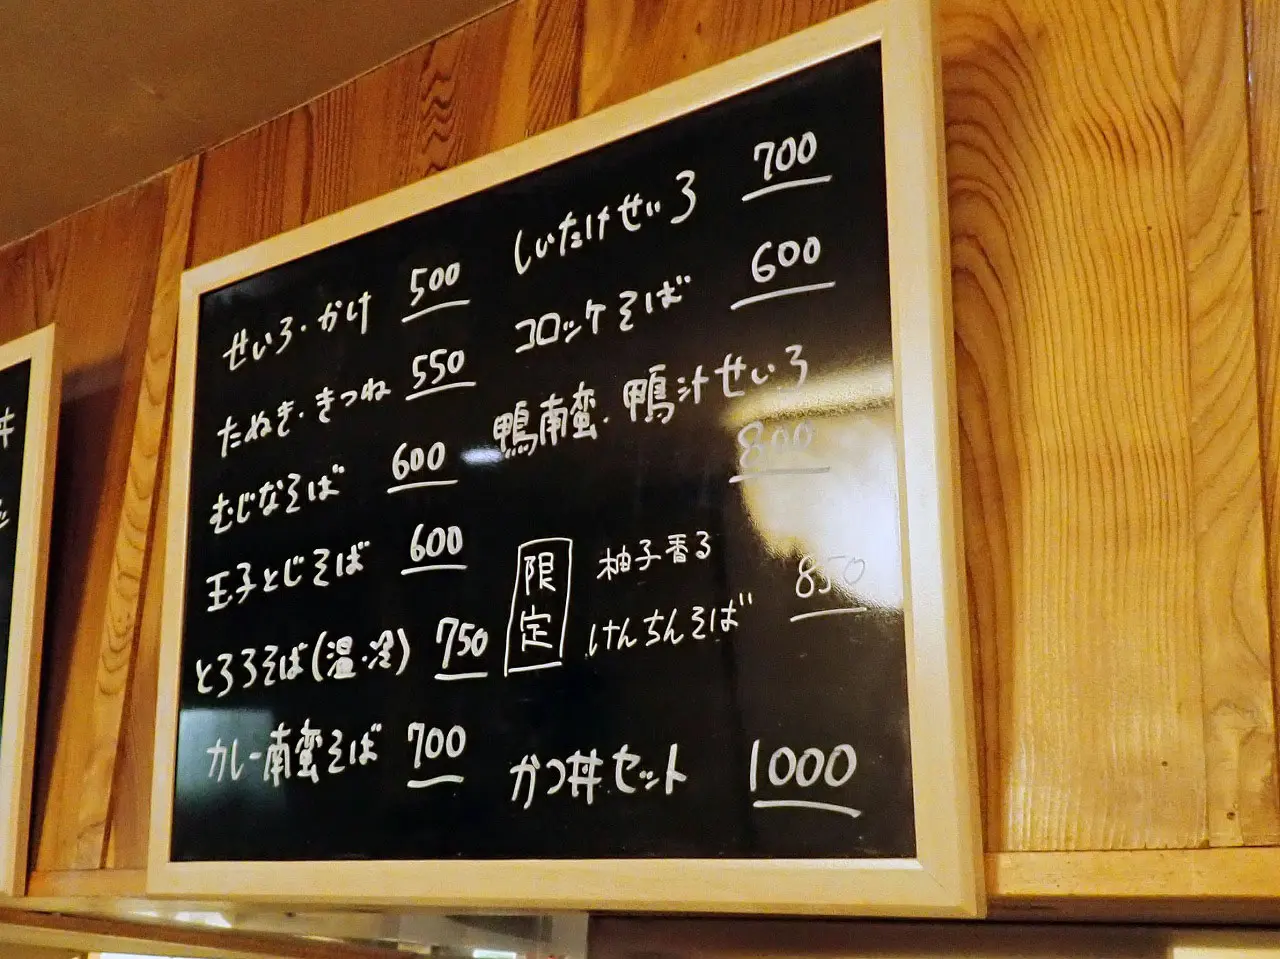 せいろ・かけ 500
たぬき・きつね 550
むじなそば 600
玉子とじそば 600
とろろそば(温・冷) 750
カレー南蛮そば 700
しいたけせいろ 700
コロッケそば 600
鴨南蛮・鴨汁せいろ
800
限定
柚子香る
けんちんそば 850
かつ丼セット 1000
丼